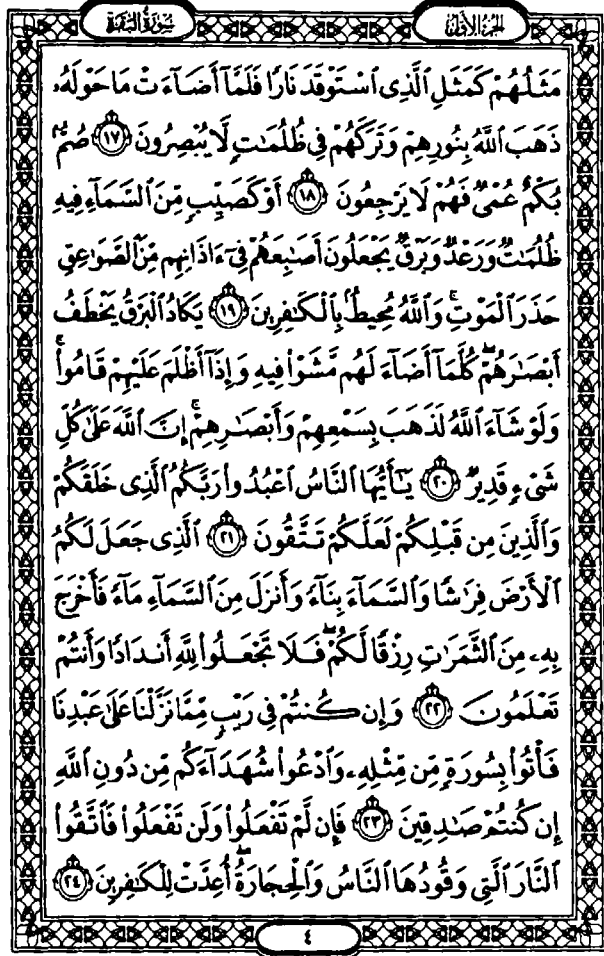 الجزء الأول سورة البقرة
مَثَلُهُمْ كَمَثَلِ ٱلَّذِى ٱسْتَوْقَدَ نَارًا فَلَمَّآ أَضَآءَتْ مَا حَوْلَهُۥ
ذَهَبَ ٱللَّهُ بِنُورِهِمْ وَتَرَكَهُمْ فِى ظُلُمَٰتٍ لَّا يُبْصِرُونَ ١٧ صُمٌّۢ
بُكْمٌ عُمْىٌ فَهُمْ لَا يَرْجِعُونَ ١٨ أَوْ كَصَيِّبٍ مِّنَ ٱلسَّمَآءِ فِيهِ
ظُلُمَٰتٌ وَرَعْدٌ وَبَرْقٌ يَجْعَلُونَ أَصَٰبِعَهُمْ فِىٓ ءَاذَانِهِم مِّنَ ٱلصَّوَٰعِقِ
حَذَرَ ٱلْمَوْتِ ۚ وَٱللَّهُ مُحِيطٌۢ بِٱلْكَٰفِرِينَ ١٩ يَكَادُ ٱلْبَرْقُ يَخْطَفُ
أَبْصَٰرَهُمْ ۖ كُلَّمَآ أَضَآءَ لَهُم مَّشَوْا۟ فِيهِ وَإِذَآ أَظْلَمَ عَلَيْهِمْ قَامُوا۟ ۚ
وَلَوْ شَآءَ ٱللَّهُ لَذَهَبَ بِسَمْعِهِمْ وَأَبْصَٰرِهِمْ ۚ إِنَّ ٱللَّهَ عَلَىٰ كُلِّ
شَىْءٍ قَدِيرٌ ٢٠ يَٰٓأَيُّهَا ٱلنَّاسُ ٱعْبُدُوا۟ رَبَّكُمُ ٱلَّذِى خَلَقَكُمْ
وَٱلَّذِينَ مِن قَبْلِكُمْ لَعَلَّكُمْ تَتَّقُونَ ٢١ ٱلَّذِى جَعَلَ لَكُمُ
ٱلْأَرْضَ فِرَٰشًا وَٱلسَّمَآءَ بِنَآءً وَأَنزَلَ مِنَ ٱلسَّمَآءِ مَآءً فَأَخْرَجَ
بِهِۦ مِنَ ٱلثَّمَرَٰتِ رِزْقًا لَّكُمْ ۖ فَلَا تَجْعَلُوا۟ لِلَّهِ أَندَادًا وَأَنتُمْ
تَعْلَمُونَ ٢٢ وَإِن كُنتُمْ فِى رَيْبٍ مِّمَّا نَزَّلْنَا عَلَىٰ عَبْدِنَا
فَأْتُوا۟ بِسُورَةٍ مِّن مِّثْلِهِۦ وَٱدْعُوا۟ شُهَدَآءَكُم مِّن دُونِ ٱللَّهِ
إِن كُنتُمْ صَٰدِقِينَ ٢٣ فَإِن لَّمْ تَفْعَلُوا۟ وَلَن تَفْعَلُوا۟ فَٱتَّقُوا۟
ٱلنَّارَ ٱلَّتِى وَقُودُهَا ٱلنَّاسُ وَٱلْحِجَارَةُ ۖ أُعِدَّتْ لِلْكَٰفِرِينَ ٢٤
٤